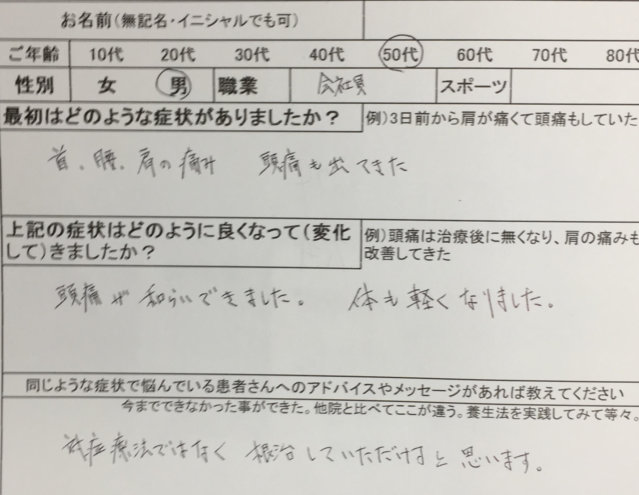 お名前(無記名・イニシャルでも可)
ご年齢 10代 20代 30代 40代 50代 60代 70代 80代
性別 女 男 職業 会社員 スポーツ
最初はどのような症状がありましたか? 例)3日前から肩が痛くて頭痛もしていた
首、腰、肩の痛み 頭痛も出てきた
上記の症状はどのように良くなって(変化 例)頭痛は治療後に無くなり、肩の痛みも
して)きましたか? 改善してきた
頭痛が和らいできました。 体も軽くなりました。
同じような症状で悩んでいる患者さんへのアドバイスやメッセージがあれば教えてください
今までできなかった事ができた。他院と比べてここが違う。養生法を実践してみて等々。
対症療法ではなく 根治していただけると思います。